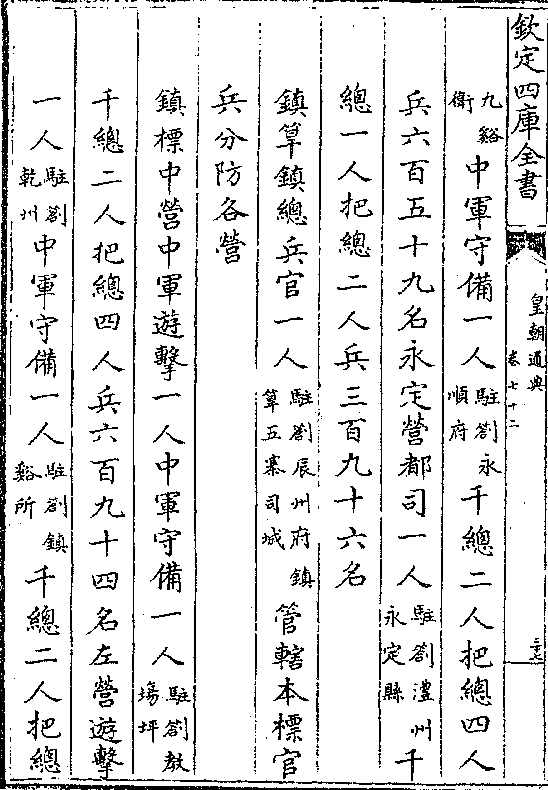 欽定四庫全書
皇朝通典
卷七十二
三七
九谿
衛
中軍守備一人
駐劄永
順府
千總二人把總四人
兵六百五十九名永定營都司一人
駐劄澧州
永定縣
千
總一人把總二人兵三百九十六名
鎮筸鎮總兵官一人
駐劄辰州府鎮
筸五寨司城
管轄本標官
兵分防各營
鎮標中營中軍遊擊一人中軍守備一人
駐劄教
塲坪
千總二人把總四人兵六百九十四名左營遊擊
一人
駐劄
乾州
中軍守備一人
駐劄鎮
谿所
千總二人把總